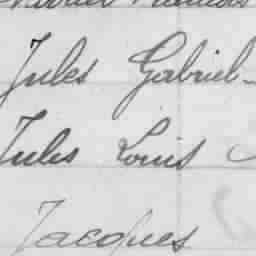 Jules Gabriel
Jules Louis
Jacques